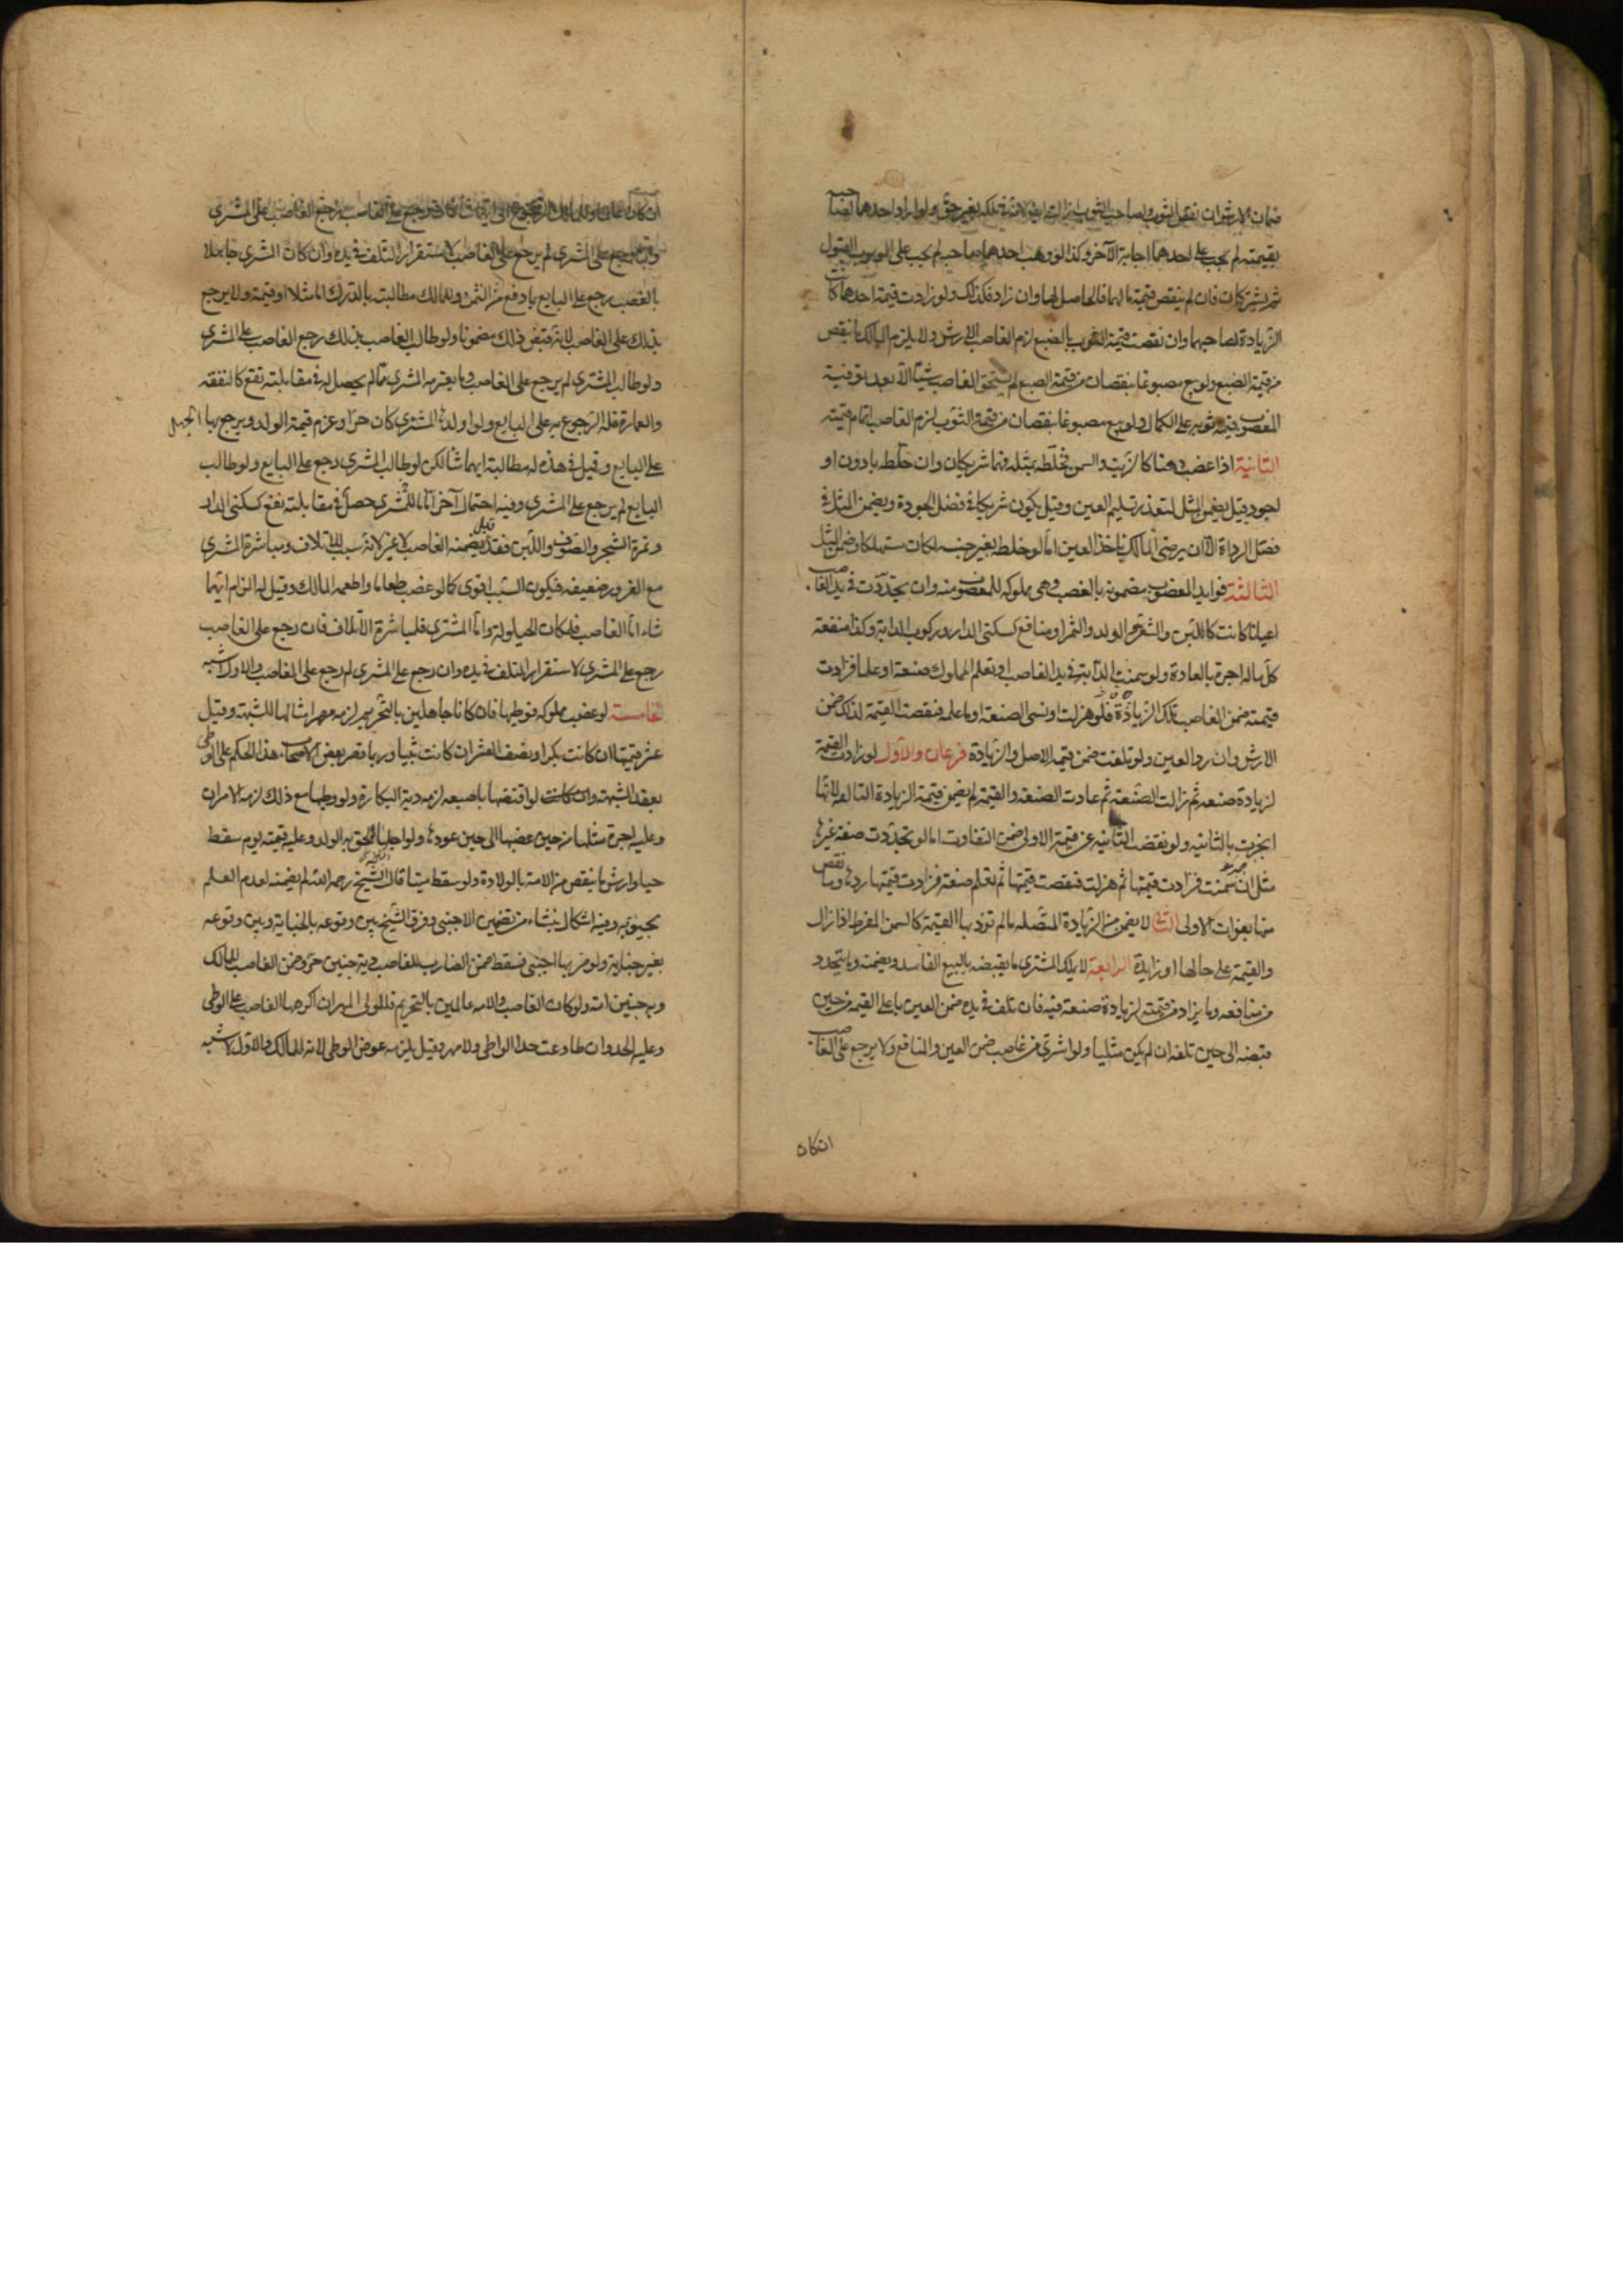 ضمان الارش ان نقص الثوب ولصاحب الثوب ازالته ايضا لانه في ملكه بغير حق ولو اراد احدهما لصاحبه
بقيمته لم يجب على احدهما اجابة الآخر وكذا لو وهب احدهما صاحبه لم يجب على الموهوب القبول
ثم يشتركان فان لم ينقص قيمة مالهما فالحاصل لهما وان زاد فكذلك ولو زادت قيمة احدهما كانت
الزيادة لصاحبها وان نقصت قيمة الثوب بالصبغ لزم الغاصب الارش ولا يلزم المالك ما ينقص
من قيمة الصبغ ولو بيع مصبوغا بنقصان من قيمة الصبغ لم يستحق الغاصب شيئا الا بعد توفية
المغصوب قيمة ثوبه على الكمال ولو بيع مصبوغا بنقصان من قيمة الثوب لزم الغاصب اتمام قيمته
الثانية اذا غصب دهنا كالزيت والسمن فخلطه بمثله فهما شريكان وان خلطه بادون او
اجود قيل يضمن المثل لتعذر تسليم العين وقيل يكون شريكا في فضل الجودة ويضمن المثل في
فضل الرداة الا ان يرضى المالك باخذ العين اما لو خلطه بغير جنسه لكان مستهلكا وضمن المثل
الثالثة فوايد المغصوب مضمونه بالغصب وهى مملوكه للمغصوب منه وان تجددت في يد الغاصب
اعيانا كانت كاللبن والشعر والولد والثمر او منافع كسكنى الدار وركوب الدابة وكذا منفعة
كل ماله اجرة بالعادة ولو سمنت الدابة في يد الغاصب او تعلم المملوك صنعة او علما فزادت
قيمته ضمن الغاصب تلك الزيادة فلو هزلت او نسى الصنعة او ما علمه فنقصت القيمة لذلك ضمن
الارش وان رد العين ولو تلفت ضمن قيمة الاصل والزيادة فرعان الاول لو زادت القيمة
لزيادة صنعه ثم زالت الصنعة ثم عادت الصنعة والقيمة لم يضمن قيمة الزيادة التالفه لانها
انجبرت بالثانيه ولو نقصت الثانيه عن قيمة الاولى ضمن التفاوت اما لو تجددت صفة غيرها
مثل ان سمنت فزادت قيمتها ثم هزلت فنقصت قيمتها ثم تعلم صنعة فزادت قيمتها ردها وما نقص
منها بفوات الاولى الثاني لا يضمن من الزيادة المتصله ما لم تزد بها القيمة كالسمن المفرط اذا زال
والقيمة على حالها او زايدة الرابعة لا يملك المشتري ما يقبضه بالبيع الفاسد ويضمنه وما يتجدد
من منافعه وما يزاد من قيمته لزيادة صنعة فيه فان تلف في يده ضمن العين باعلى القيم من حين
قبضه الى حين تلفه ان لم يكن مثليا ولو اشترى من غاصب ضمن العين والمنافع ولا يرجع على الغاصب
ان كان
ان كان عالما وللمالك الرجوع على ايهما شاء فان رجع على الغاصب رجع الغاصب على المشتري
وان رجع على المشتري لم يرجع على الغاصب لاستقرار التلف في يده وان كان المشتري جاهلا
بالغصب رجع على البايع بما دفع من الثمن وللمالك مطالبته بالدرك اما مثلا او قيمة ولا يرجع
بذلك على الغاصب لانه قبض ذلك مضمونا ولو طالب الغاصب بذلك رجع الغاصب على المشتري
ولو طالب المشتري لم يرجع على الغاصب وما يغترمه المشتري مما لم يحصل له في مقابلته نفع كالنفقه
والعمارة فله الرجوع به على البايع ولو اولدها المشتري كان حرا وغرم قيمة الولد ويرجع بها
على البايع وقيل في هذه له مطالبة ايهما شا لكن لو طالب المشتري رجع على البايع ولو طالب
البايع لم يرجع على المشتري وفيه احتمال آخر اما ما حصل للمشتري في مقابلته نفع كسكنى الدار
وثمرة الشجر والصوف واللبن فقد قيل يضمنه الغاصب لا غير لانه سبب الاتلاف ومباشرة المشتري
مع الغرور ضعيفه فيكون السبب اقوى كما لو غصب طعاما واطعمه المالك وقيل له الزام ايهما
شاء اما الغاصب فلمكان الحيلولة واما المشتري فلمباشرة الاتلاف فان رجع على الغاصب
رجع على المشتري لاستقرار التلف في يده وان رجع على المشتري لم يرجع على الغاصب والاول اشبه
الخامسة لو غصب مملوكه فوطيها فان كانا جاهلين بالتحريم لزمه مهر امثالها للشبهة وقيل
عشر قيمتها ان كانت بكرا ونصف العشر ان كانت ثيبا وربما قصر بعض الاصحاب هذا الحكم على الوطى
بعقد الشبهة ولو افتضها باصبعه لزمه دية البكارة ولو وطيها مع ذلك لزمه الامران
وعليه اجرة مثلها من حين غصبها الى حين عودها ولو احبلها لحق به الولد وعليه قيمته يوم سقط
حيا وارش ما ينقص من الامة بالولادة ولو سقط ميتا قال الشيخ رحمه الله لم يضمنه لعدم العلم
بحيوته وفيه اشكال ينشاء من تضمين الاجنبى وفرق الشيخ بين وقوعه بالجناية وبين وقوعه
بغير جناية ولو ضربها اجنبى فسقط ضمن الضارب للغاصب دية جنين حر وضمن الغاصب للمالك
دية جنين امة ولو كان الغاصب والامه عالمين بالتحريم فللمولى المهر ان اكرهها الغاصب على الوطى
وعليه الحد وان طاوعت حد الواطى ولا مهر وقيل يلزمه عوض الوطى لانه للمالك والاول اشبه